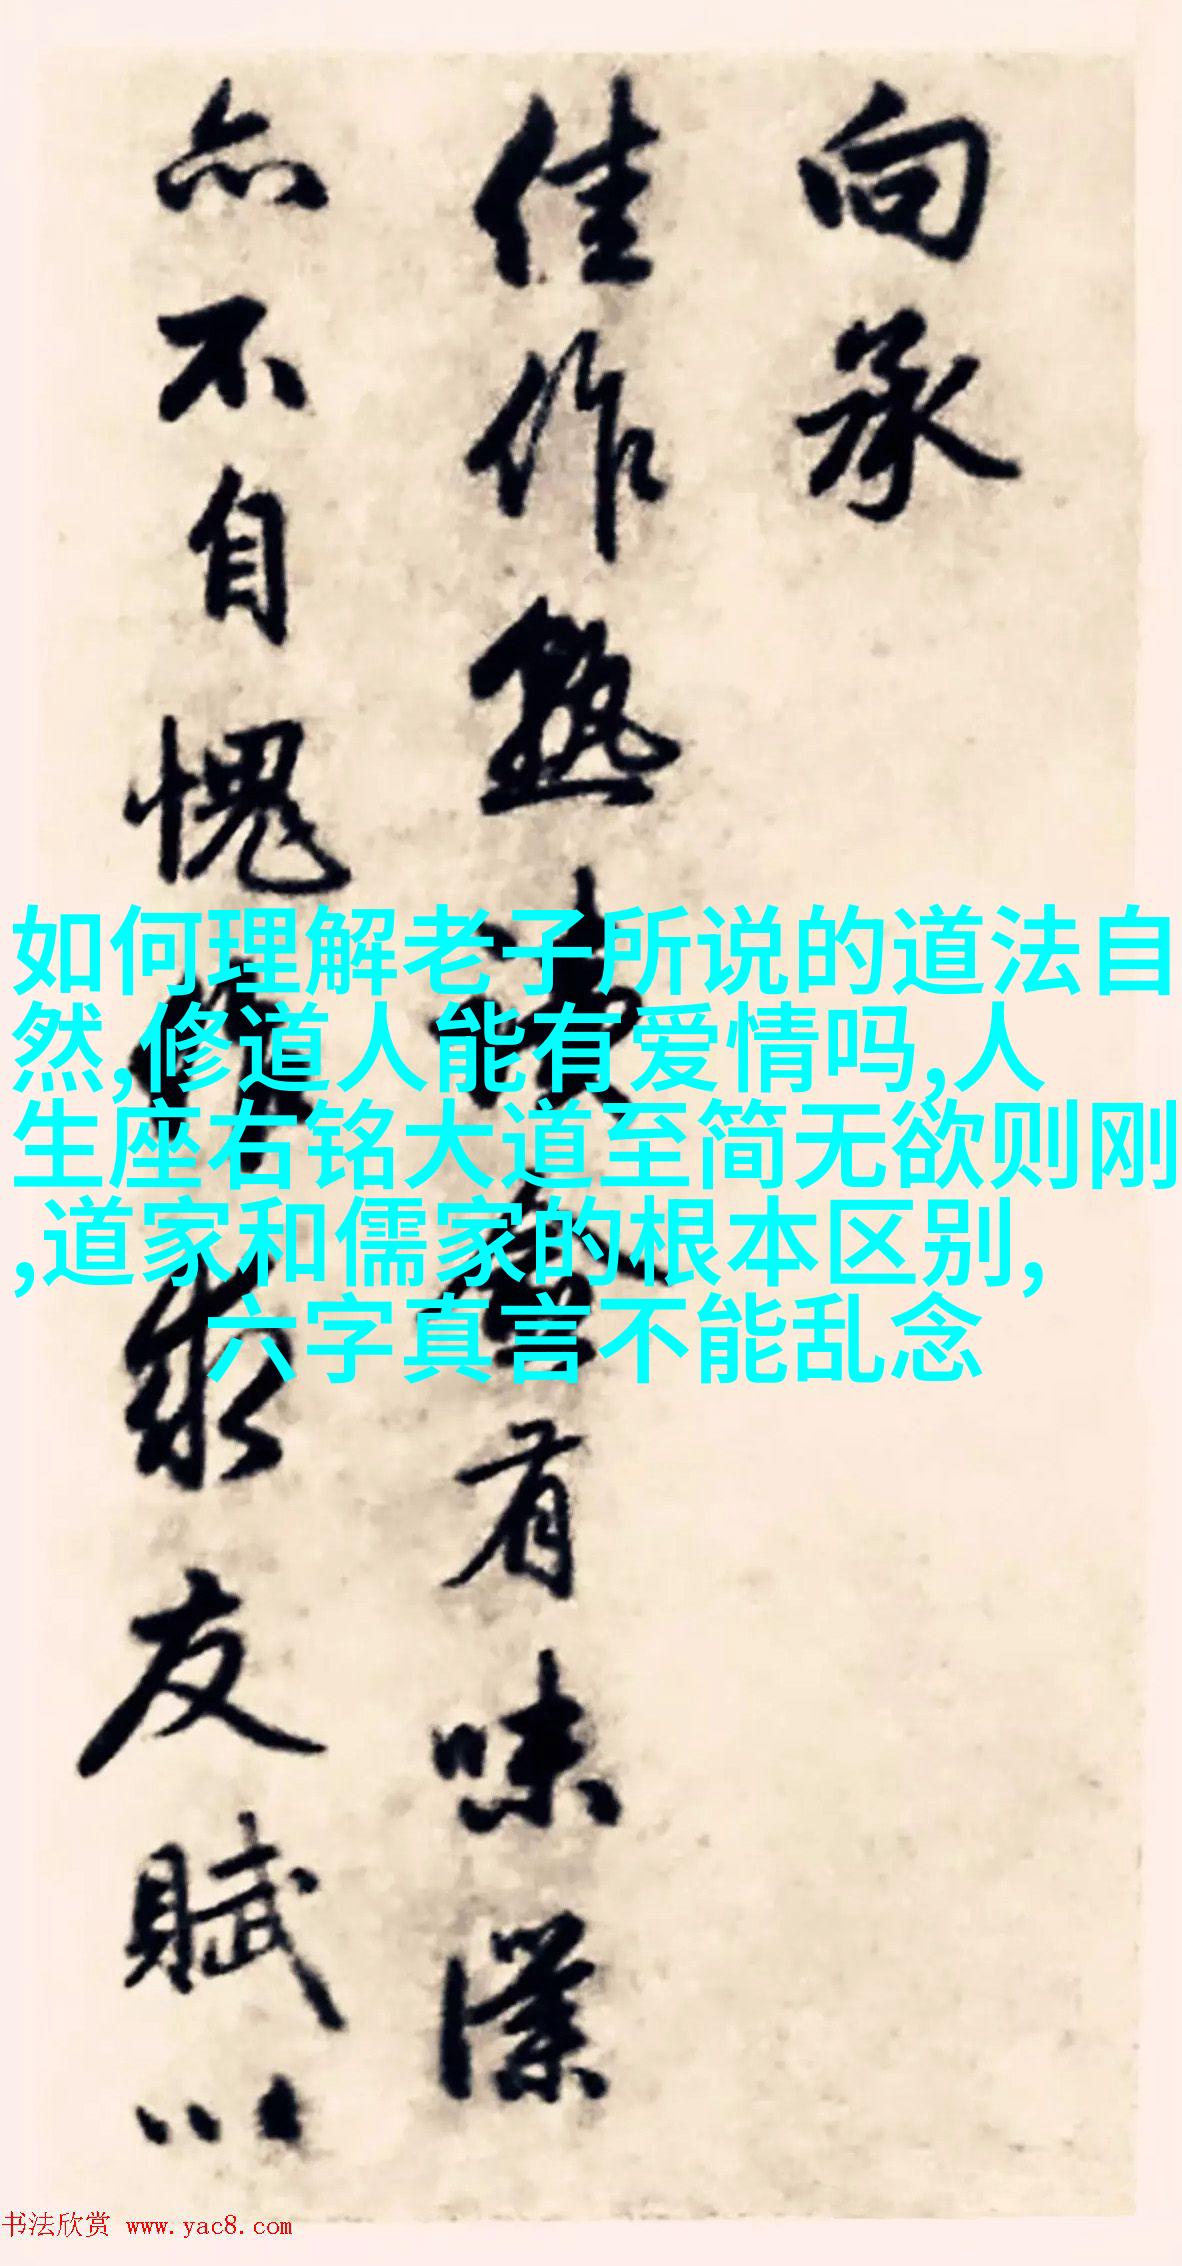 向承
佳作熟读
有味深
亦不自愧作
求友赋以
如何理解老子所说的道法自
然,修道人能有爱情吗,人
生座右铭大道至简无欲则刚
,道家和儒家的根本区别,
六字真言不能乱念
书法欣赏 www.yac8.com